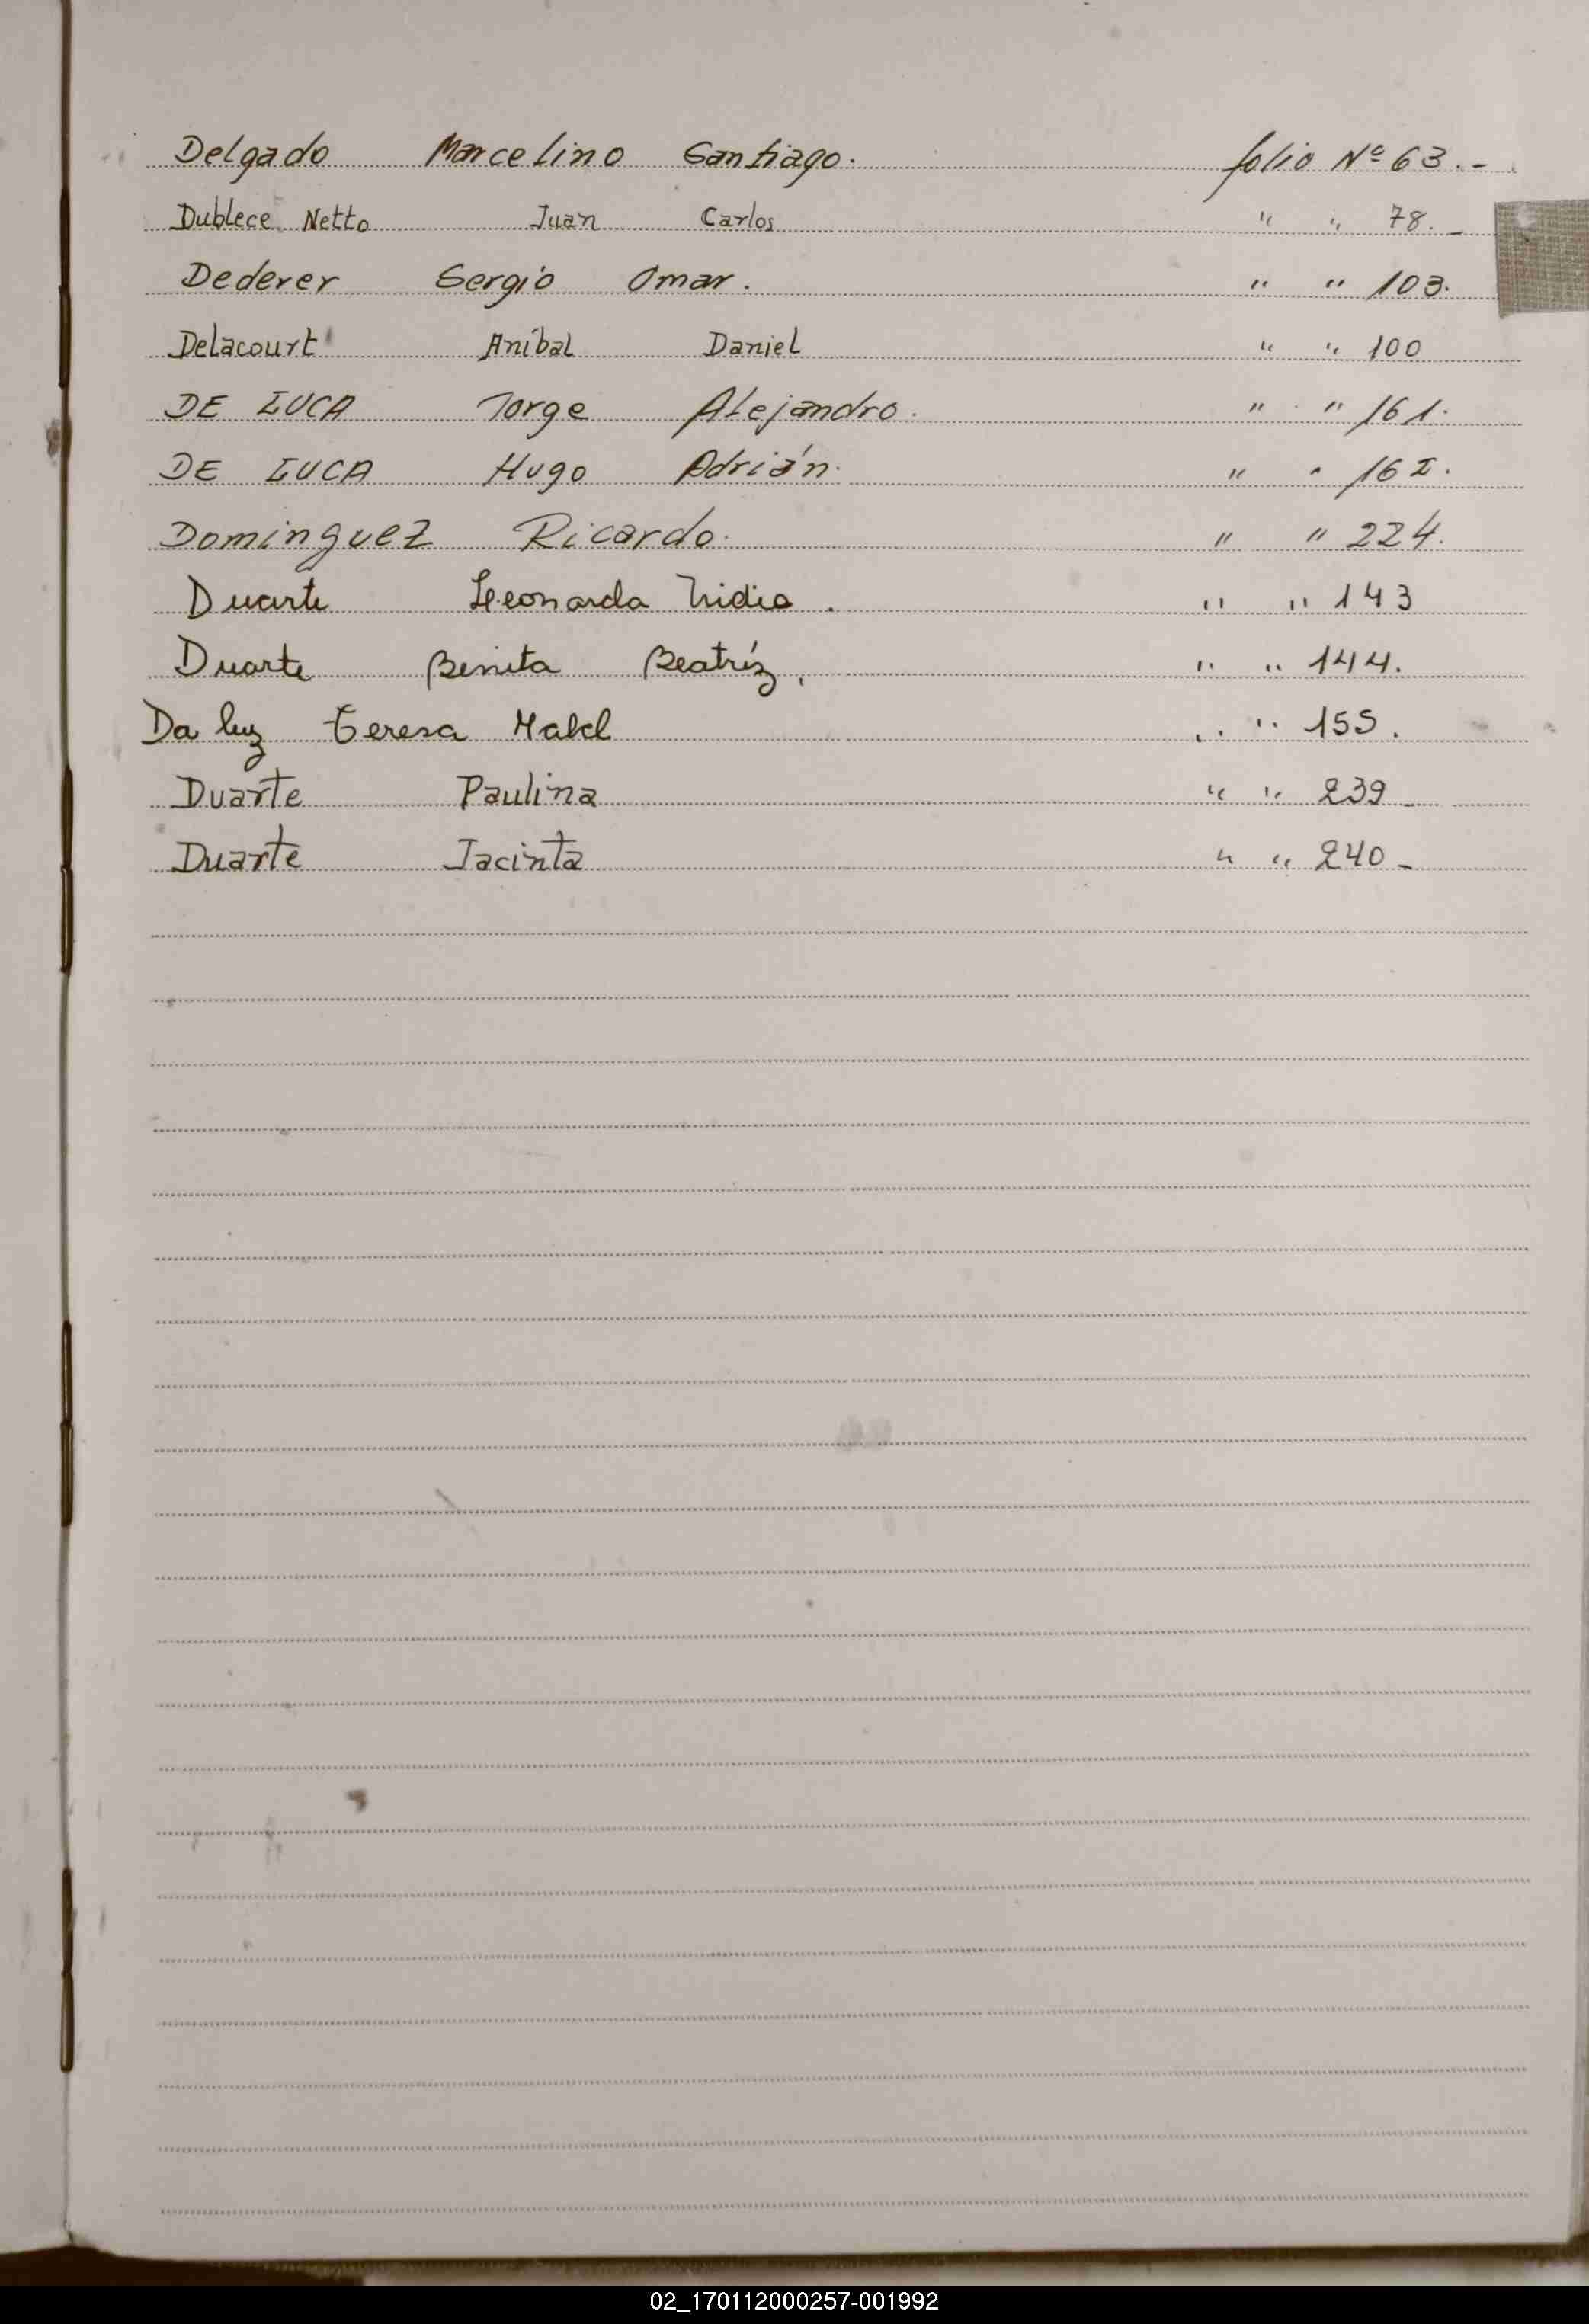 Delgado Marcelino Santiago. folio Nº 63.-
Dublece Netto Juan Carlos " " 78.-
Dederer Sergio Omar. " " 103.
Delacourt Aníbal Daniel " " 100
DE LUCA Jorge Alejandro. " " 161.
DE LUCA Hugo Adrián. " " 162.
Dominguez Ricardo. " " 224.
Duarte Leonarda . " " 143
Duarte Benita Beatríz. " " 144.
Da luz Teresa Mabel " " 155.
Duarte Paulina " " 239-
Duarte Jacinta " " 240-
02_170112000257-001992